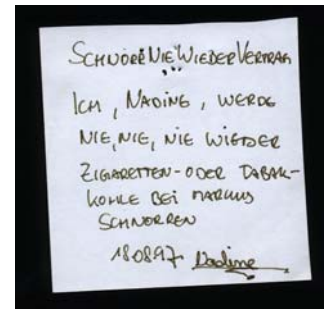 SCHNORRE NIE WIEDER VERTRAG
ICH, NADINE, WERDE
NIE, NIE, NIE WIEDER
ZIGARETTEN- ODER TABAK-
KOHLE BEI MARKUS
SCHNORREN
180897 Nadine